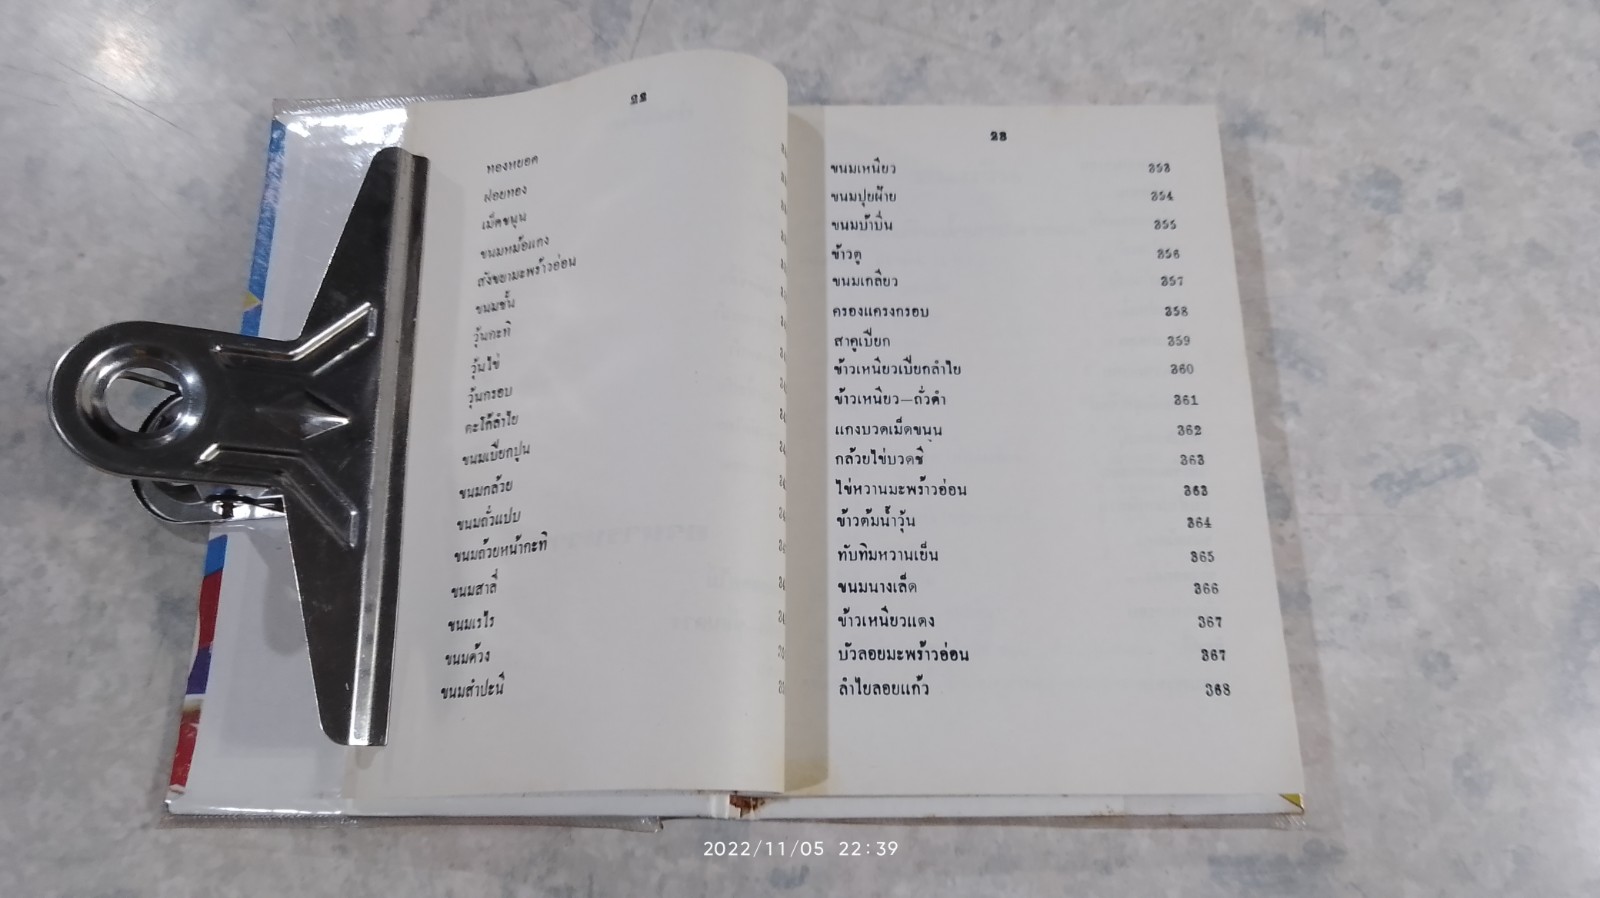 22
ทองหยอด
ฝอยทอง
เม็ดขนุน
ขนมหม้อแกง
สังขยามะพร้าวอ่อน
ขนมชั้น
วุ้นกะทิ
วุ้นไข่
วุ้นกรอบ
ตะโก้ลำไย
ขนมเปียกปูน
ขนมกล้วย
ขนมถั่วแปบ
ขนมถ้วยหน้ากะทิ
ขนมสาลี่
ขนมเรไร
ขนมด้วง
ขนมสำปะนี
23
ขนมเหนียว 353
ขนมปุยฝ้าย 354
ขนมบ้าบิ่น 355
ข้าวตู 356
ขนมเกลียว 357
ครองแครงกรอบ 358
สาคูเปียก 359
ข้าวเหนียวเปียกลำไย 360
ข้าวเหนียว—ถั่วดำ 361
แกงบวดเม็ดขนุน 362
กล้วยไข่บวดชี 363
ไข่หวานมะพร้าวอ่อน 363
ข้าวต้มน้ำวุ้น 364
ทับทิมหวานเย็น 365
ขนมนางเล็ด 366
ข้าวเหนียวแดง 367
บัวลอยมะพร้าวอ่อน 367
ลำไยลอยแก้ว 368
2022/11/05 22:39